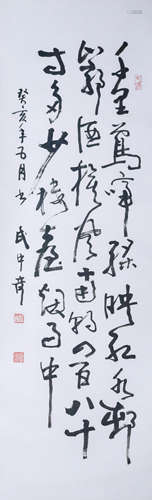 千里鶯啼綠映紅水邨
山郭酒旗風南朝四百八十
寺多少樓臺烟雨中
癸亥年五月书武中奇